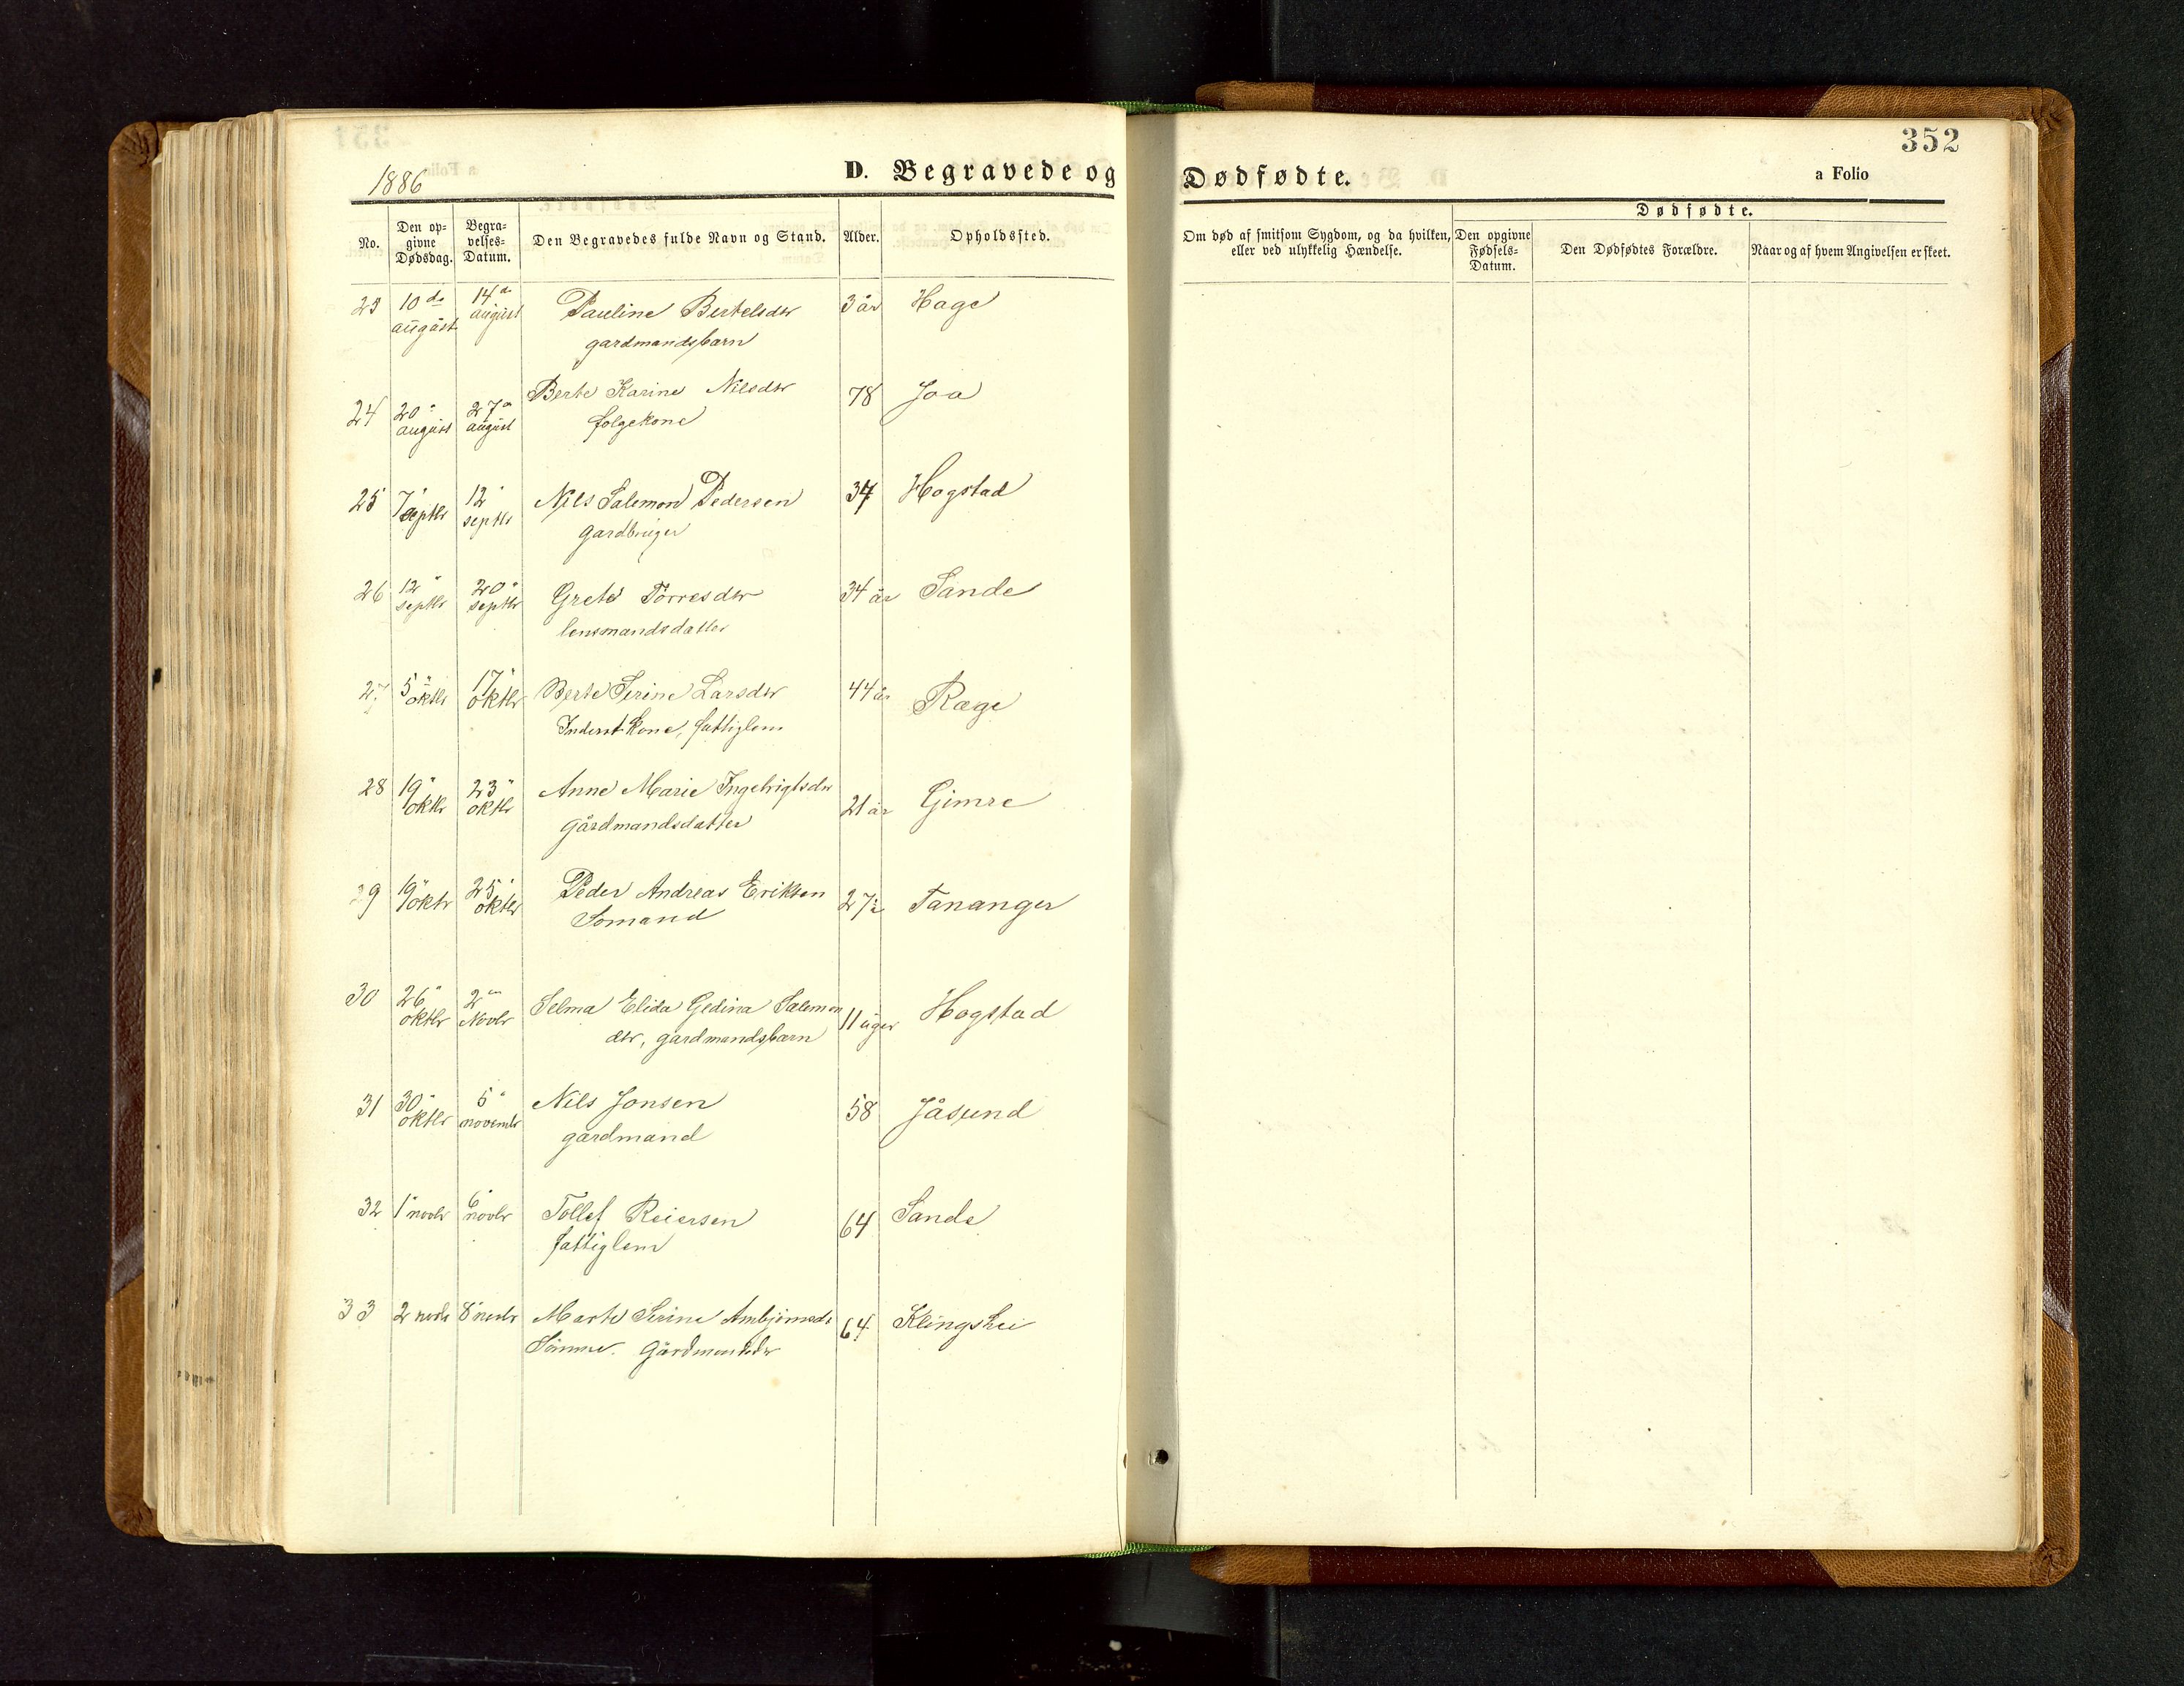 352
1886
D. Begravede og Dødfødte.
a Folio
No.
Den op-
givne
Dødsdag.
Begra-
velses-
Datum.
Den Begravedes fulde Navn og Stand.
Alder.
Opholdssted.
Om død af smitsom Sygdom, og da hvilken,
eller ved ulykkelig Hændelse.
Dødfødte.
Den opgivne
Fødsels-
Datum.
Den Dødfødtes Forældre.
Naar og af hvem Angivelsen er skeet.
23 10de august 14de august Pauline Bertelsdtr 3 år Hage
gardmandsbarn
24 20" august 27" august Berte Karine Nilsdtr 78 Joa
folgekone
25 7" septbr 12" septbr Nils Salemon Pedersen 34 Hogstad
gardbruger
26 12" septbr 20" septbr Grete Törresdtr 34 år Sande
lensmandsdatter
27 5" oktbr 17" oktbr Berte Serine Larsdtr 44 år Ræge
Inderst kone, fattiglem
28 19" oktbr 23" oktbr Anne Marie Ingebrigtsdtr 21 år Gimre
gårdmandsdatter
29 19" oktbr 25" oktbr Peder Andreas Eriksen 27 år Tananger
Somand
30 26" oktbr 2den Novbr Selma Elida Gedina Salemon 11 uger Hogstad
dtr, gardmandsbarn
31 30" oktbr 5" novembr Nils Jonsen 58 Jåsund
gardmand
32 1" novbr 6" novbr Tollef Reiersen 64 Sande
fattiglem
33 2 novbr 8" novbr Marte Serine Ambjörnsdr 64 Klingshei
Sömme. Gårdmandsdtr